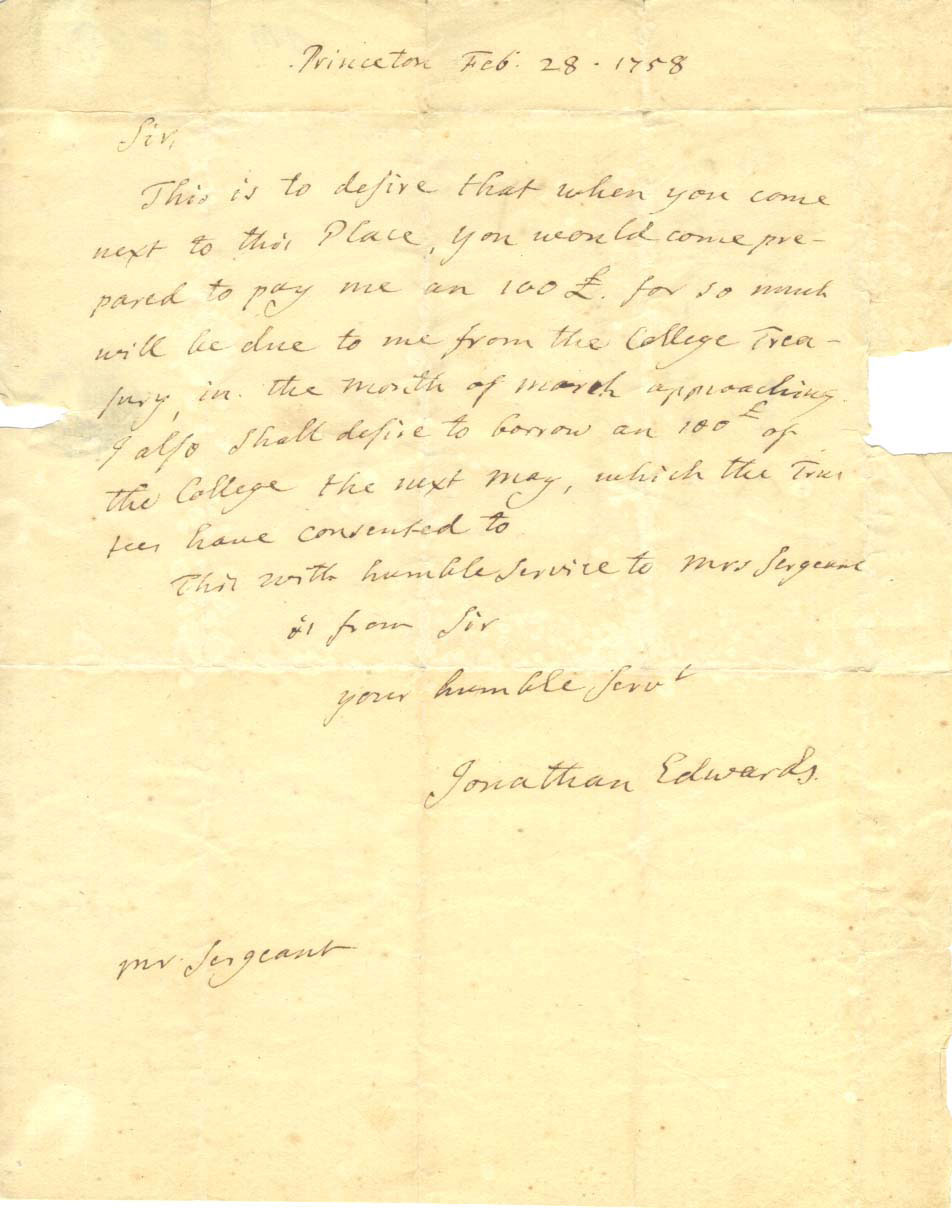 Princeton Feb. 28. 1758
Sir,
This is to deſire that when you come
next to this Place, you would come pre-
pared to pay me an 100 £. for so much
will be due to me from the College Trea-
ſury, in the month of march approaching.
I alſo Shall deſire to borrow an 100£ of
the College the next may, which the Trus
tees have consented to
This with humble Service to Mrs Sergeant
is from Sir
your humble Servt
Jonathan Edwards.
Mr Sergeant